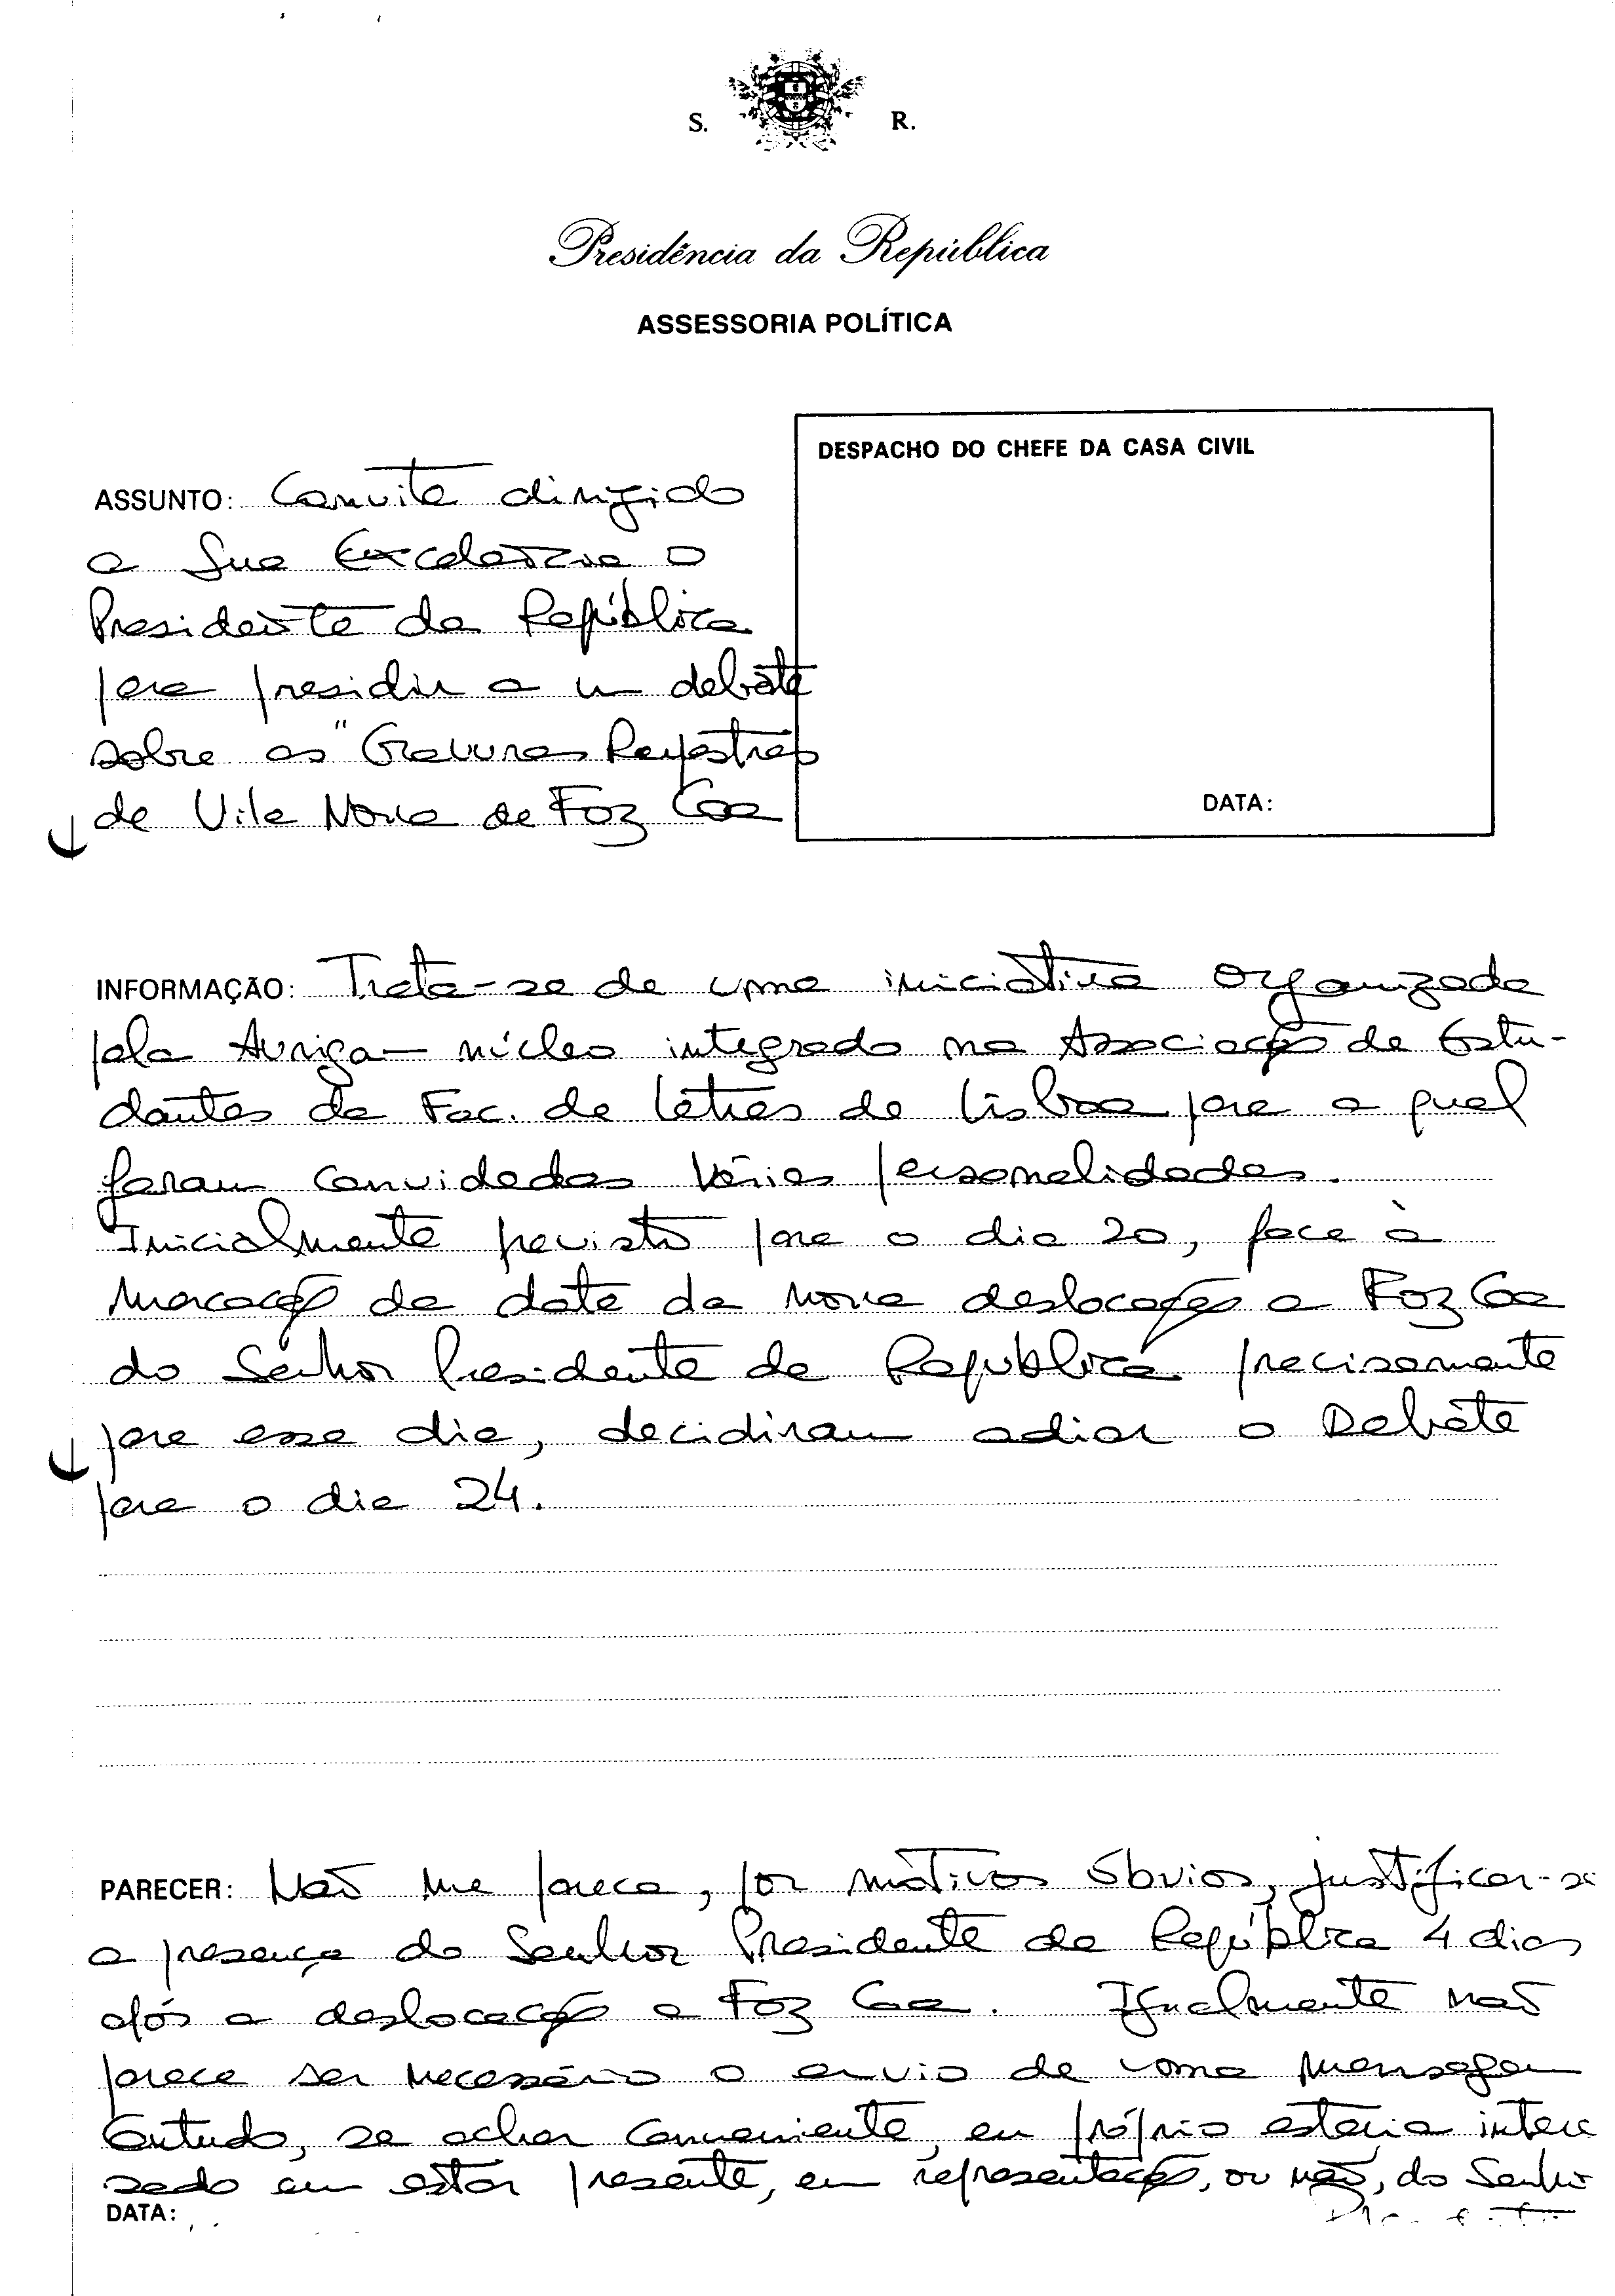 S. R.
Presidência da República
ASSESSORIA POLÍTICA
DESPACHO DO CHEFE DA CASA CIVIL
DATA:
ASSUNTO: Convite dirigido
a Sua Excelência o
Presidente da República
para presidir a um debate
sobre as "Gravuras Rupestres
de Vila Nova de Foz Coa
INFORMAÇÃO: Trata-se de uma iniciativa organizada
pela Auriga — núcleo integrado na Associação de Estu-
dantes da Fac. de Letras de Lisboa para a qual
foram convidadas várias personalidades.
Inicialmente previsto para o dia 20, face à
marcação da data da nova deslocação a Foz Coa
do Senhor Presidente da República precisamente
para esse dia, decidiram adiar o Debate
para o dia 24.
PARECER: Não me parece, por motivos óbvios, justificar-se
a presença do Senhor Presidente da República 4 dias
após a deslocação a Foz Coa. Igualmente não
parece ser necessário o envio de uma mensagem
Contudo, se achar conveniente, eu próprio estaria interes
sado em estar presente, em representação, ou não, do Senhor
DATA: